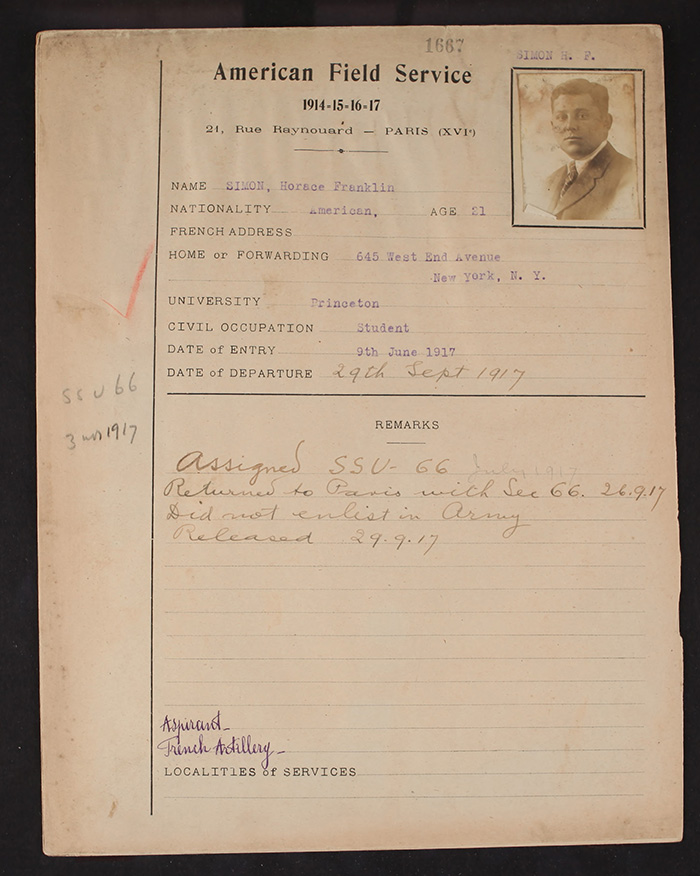 1667
SIMON H. F.
American Field Service
1914-15-16-17
21, Rue Raynouard — PARIS (XVIe)
NAME SIMON, Horace Franklin
NATIONALITY American, AGE 21
FRENCH ADDRESS
HOME or FORWARDING 645 West End Avenue
New York, N. Y.
UNIVERSITY Princeton
CIVIL OCCUPATION Student
DATE of ENTRY 9th June 1917
DATE of DEPARTURE 29th Sept 1917
SSU 66
3 mos 1917
REMARKS
Assigned SSU- 66 July 1917
Returned to Paris with Sec 66. 26.9.17
Did not enlist in Army
Released 29.9.17
Aspirant-
French Artillery-
LOCALITIES of SERVICES